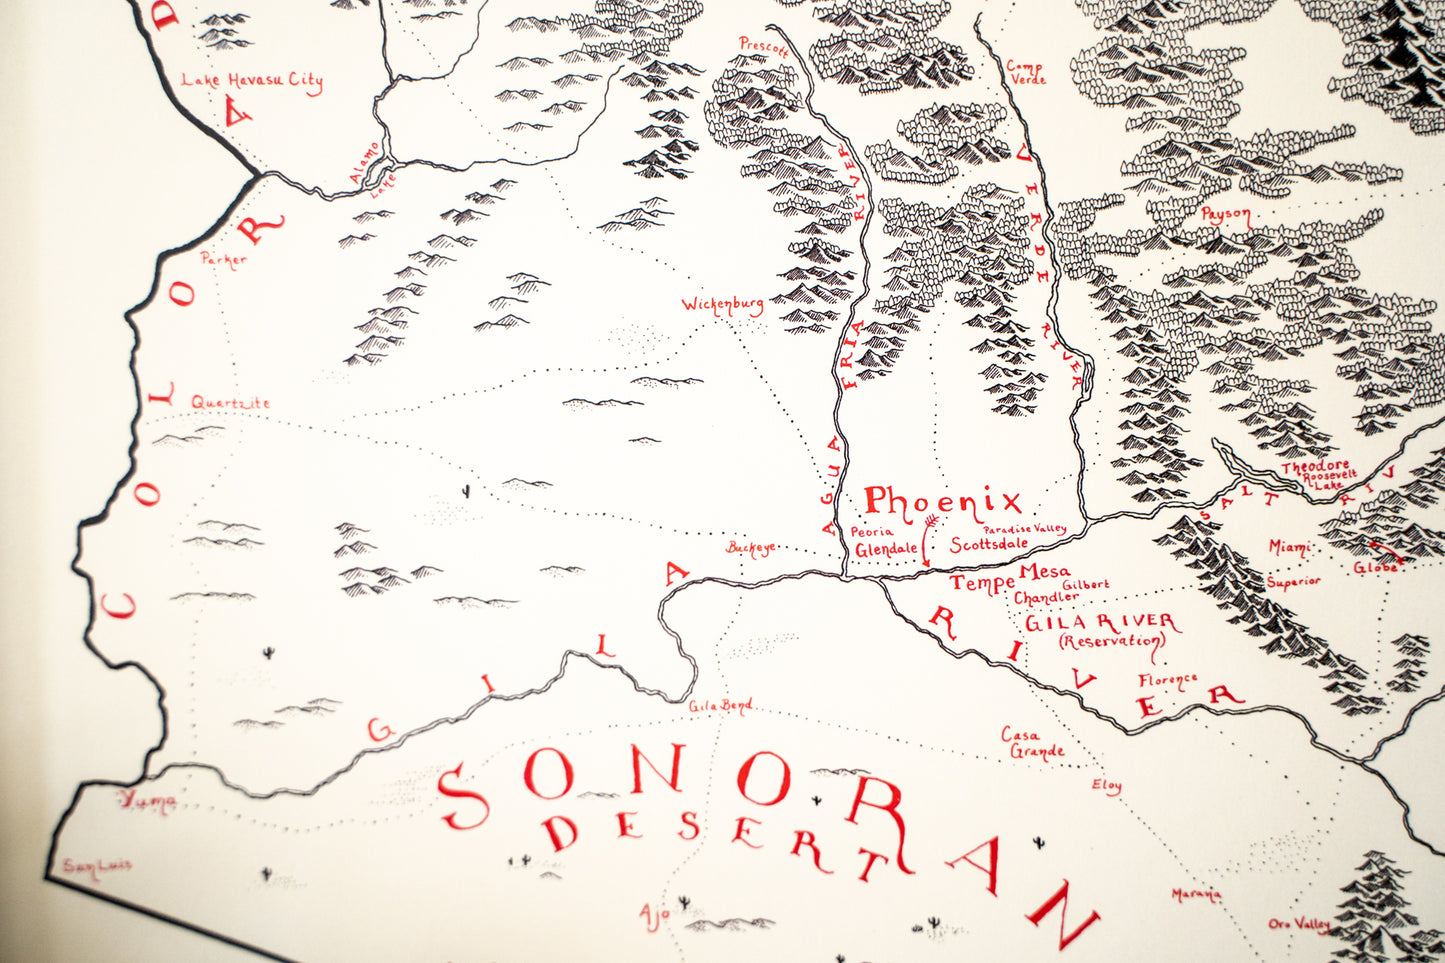 Prescott
Camp
Verde
Lake Havasu City
Alamo
Lake
COLORAD
Parker
VERDE RIVER
Payson
Wickenburg
AGUA FRIA RIVER
Quartzite
Theodore
Roosevelt
Lake
SALT RIV
Phoenix
Peoria
Paradise Valley
Glendale
Scottsdale
Buckeye
Miami
Globe
Superior
Tempe
Mesa
Gilbert
Chandler
GILA RIVER
(Reservation)
GILA RIVER
Florence
Gila Bend
Casa
Grande
Eloy
SONORAN
DESERT
Yuma
San Luis
Ajo
Marana
Oro Valley